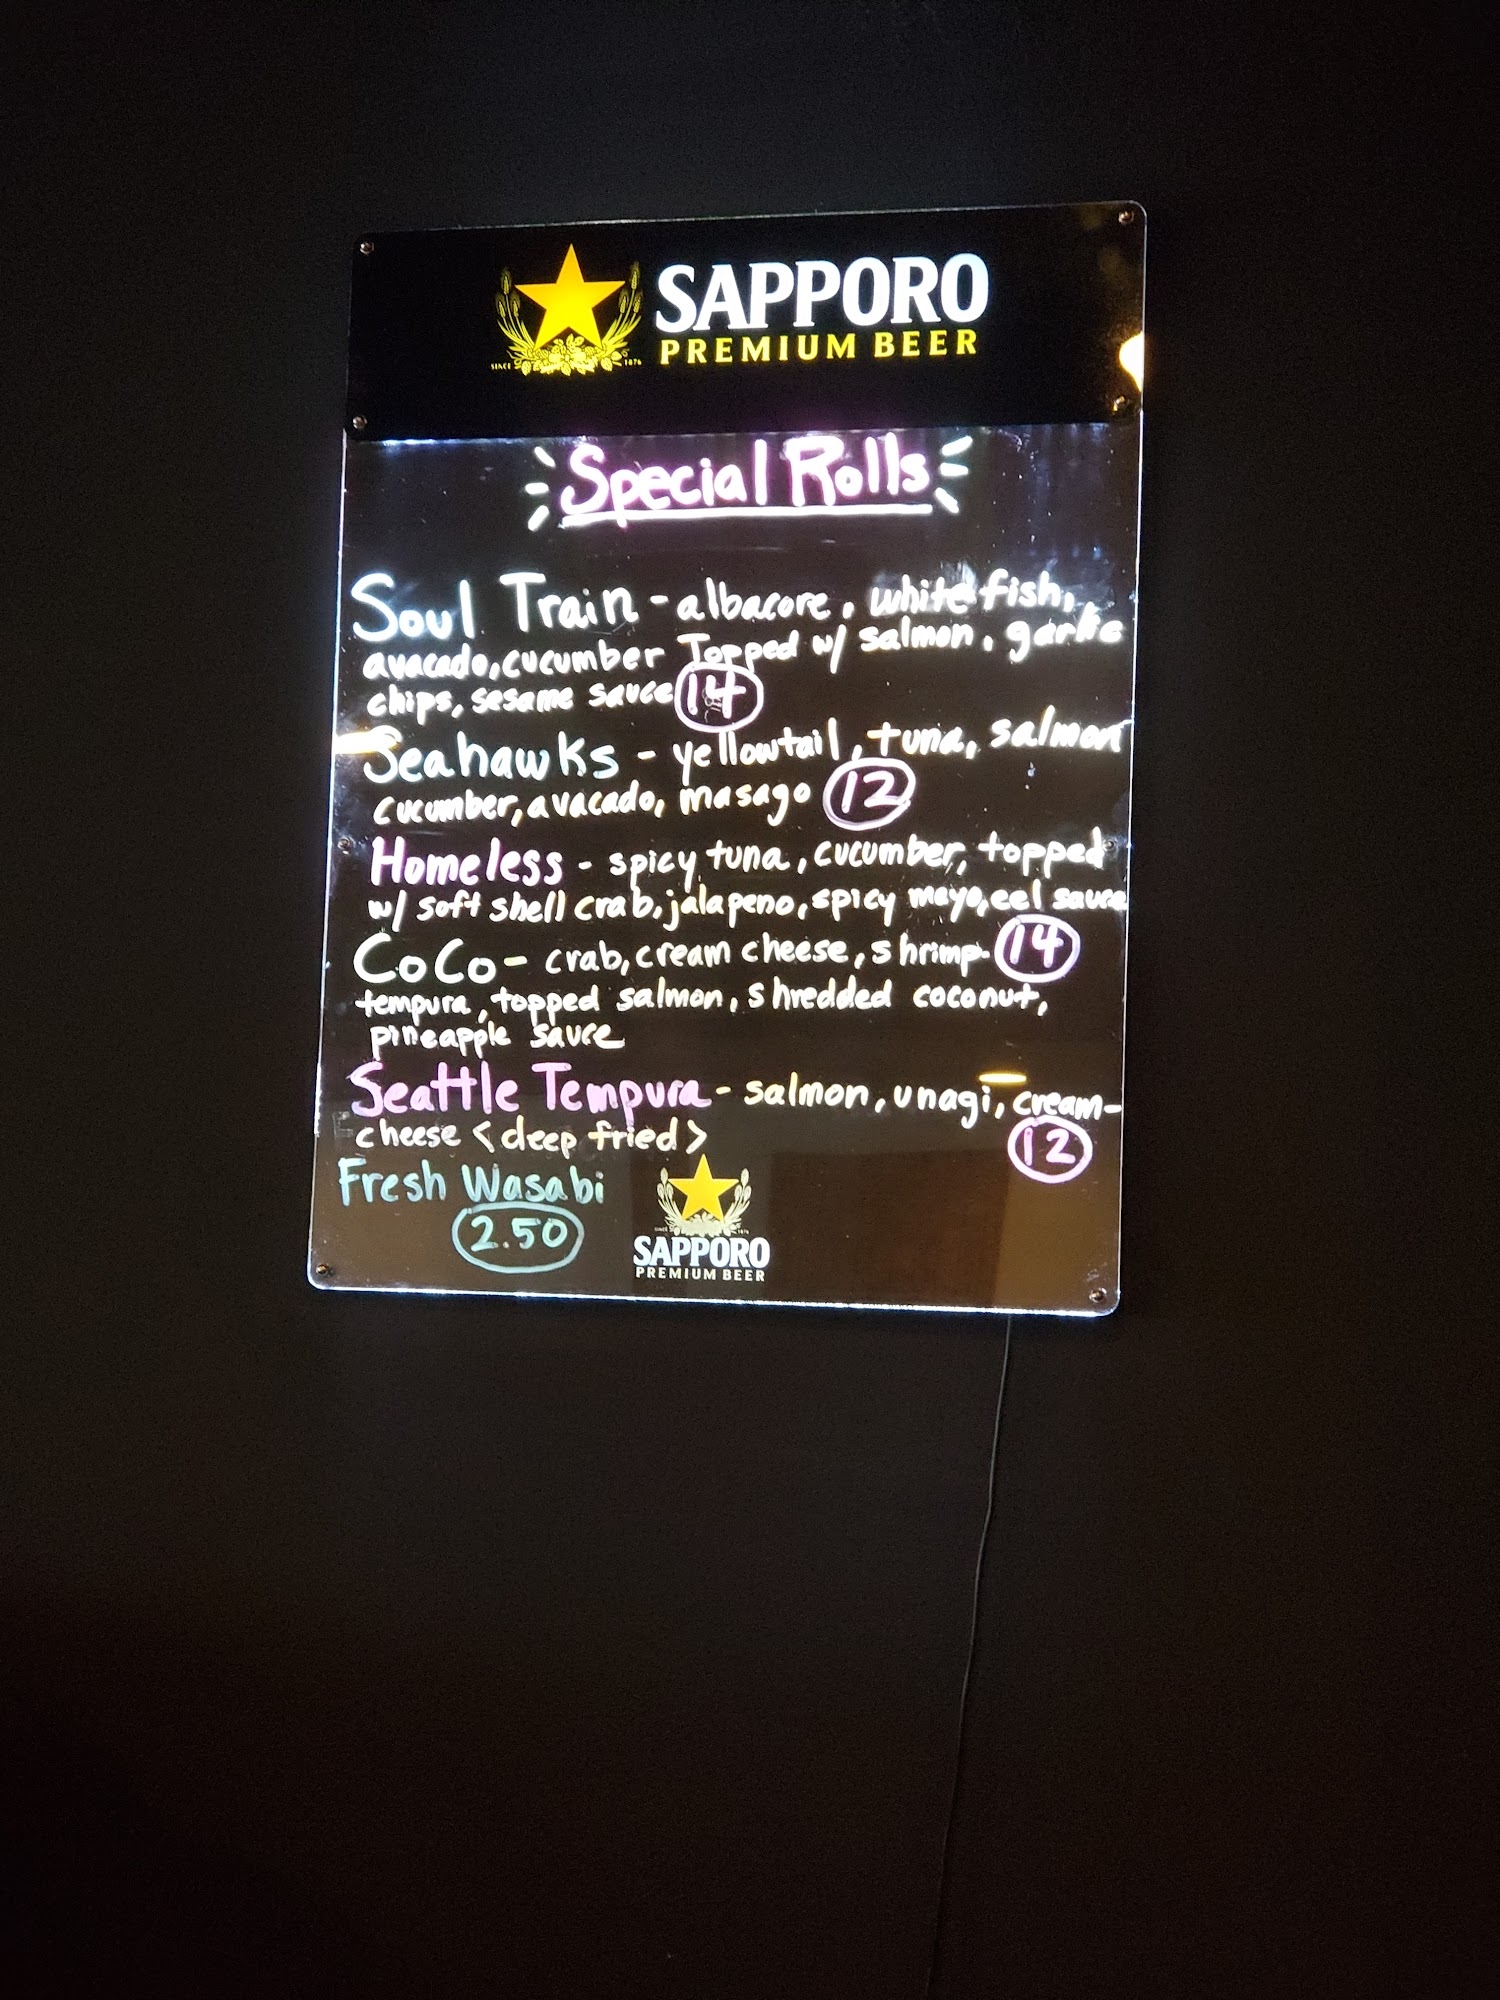 SAPPORO
PREMIUM BEER
SINCE 1876
Special Rolls
Soul Train - albacore, white fish,
avacado, cucumber Topped w/ salmon, garlic
chips, sesame sauce 14
Seahawks - yellowtail, tuna, salmon
cucumber, avacado, masago 12
Homeless - spicy tuna, cucumber, topped
w/ soft shell crab, jalapeno, spicy mayo, eel sauce
CoCo - crab, cream cheese, shrimp 14
tempura, topped salmon, shredded coconut,
pineapple sauce
Seattle Tempura - salmon, unagi, cream-
cheese <deep fried> 12
Fresh Wasabi
2.50
SINCE 1876
SAPPORO
PREMIUM BEER